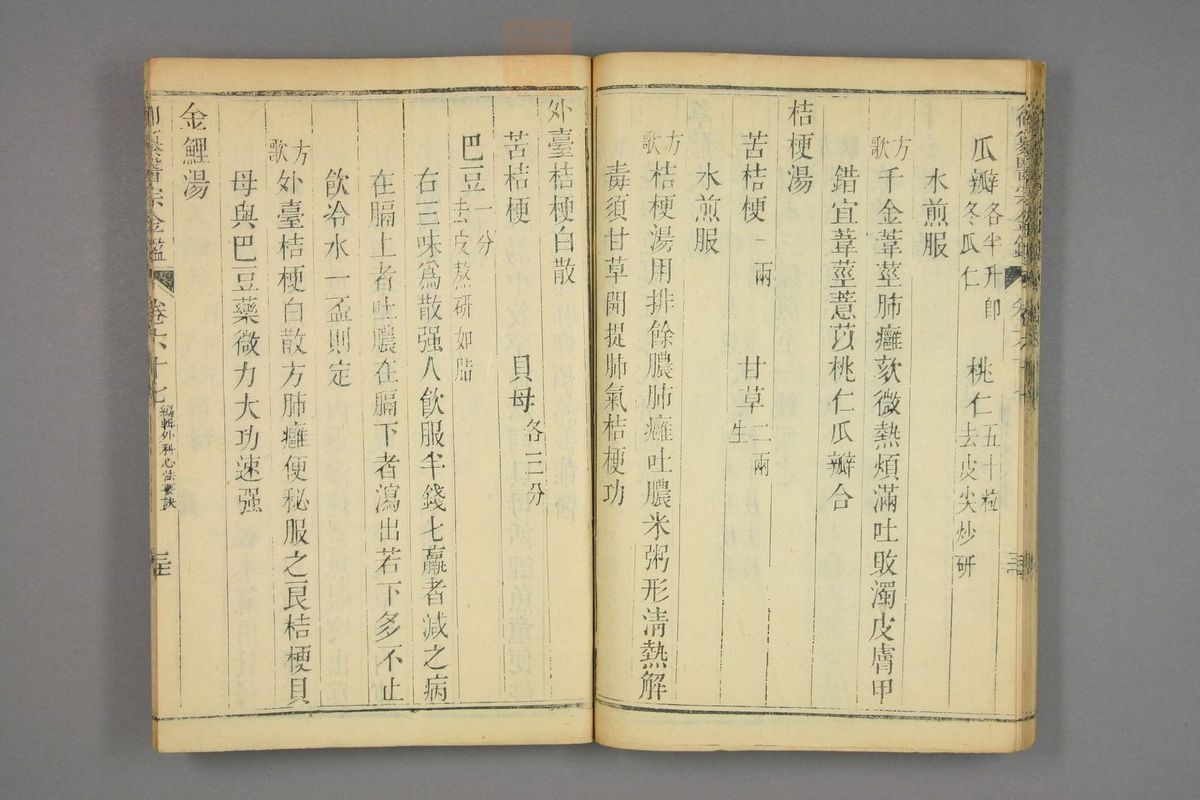 瓜瓣各半升即冬瓜仁　桃仁五十粒去皮尖炒研
水煎服
方歌　千金葦莖肺癰欬微熱煩滿吐敗濁皮膚甲
錯宜葦莖薏苡桃仁瓜瓣合
桔梗湯
苦桔梗一兩　甘草二兩生
水煎服
方歌　桔梗湯用排餘膿肺癰吐膿米粥形淸熱解
毒須甘草開提肺氣桔梗功
外臺桔梗白散
苦桔梗　貝母各三分
巴豆一分去皮熬研如脂
右三味爲散强人飮服半錢匕羸者減之病
在膈上者吐膿在膈下者瀉出若下多不止
飮冷水一盃則定
方歌　外臺桔梗白散方肺癰便秘服之良桔梗貝
母與巴豆藥微力大功速强
金鯉湯
醫宗金鑑　卷六十七　編輯外科心法要訣